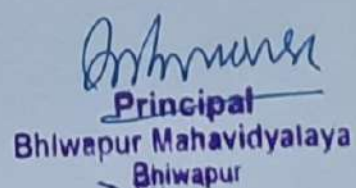 Principal
Bhiwapur Mahavidyalaya
Bhiwapur